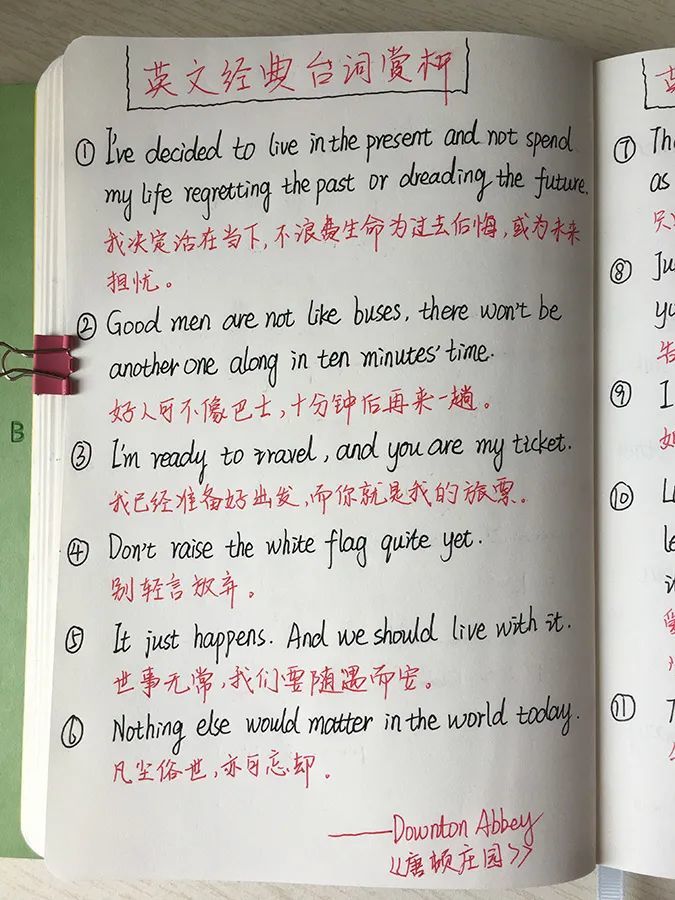 英文经典台词赏析
① I've decided to live in the present and not spend
my life regretting the past or dreading the future.
我决定活在当下，不浪费生命为过去后悔，或为未来
担忧。
② Good men are not like buses, there won't be
another one along in ten minutes' time.
好人可不像巴士，十分钟后再来一趟。
③ I'm ready to travel, and you are my ticket.
我已经准备好出发，而你就是我的旅票。
④ Don't raise the white flag quite yet.
别轻言放弃。
⑤ It just happens. And we should live with it.
世事无常，我们要随遇而安。
⑥ Nothing else would matter in the world today.
凡尘俗世，亦可忘却。
——Downton Abbey
《唐顿庄园》
B
⑦
as
⑧
⑨ I
⑩
⑪